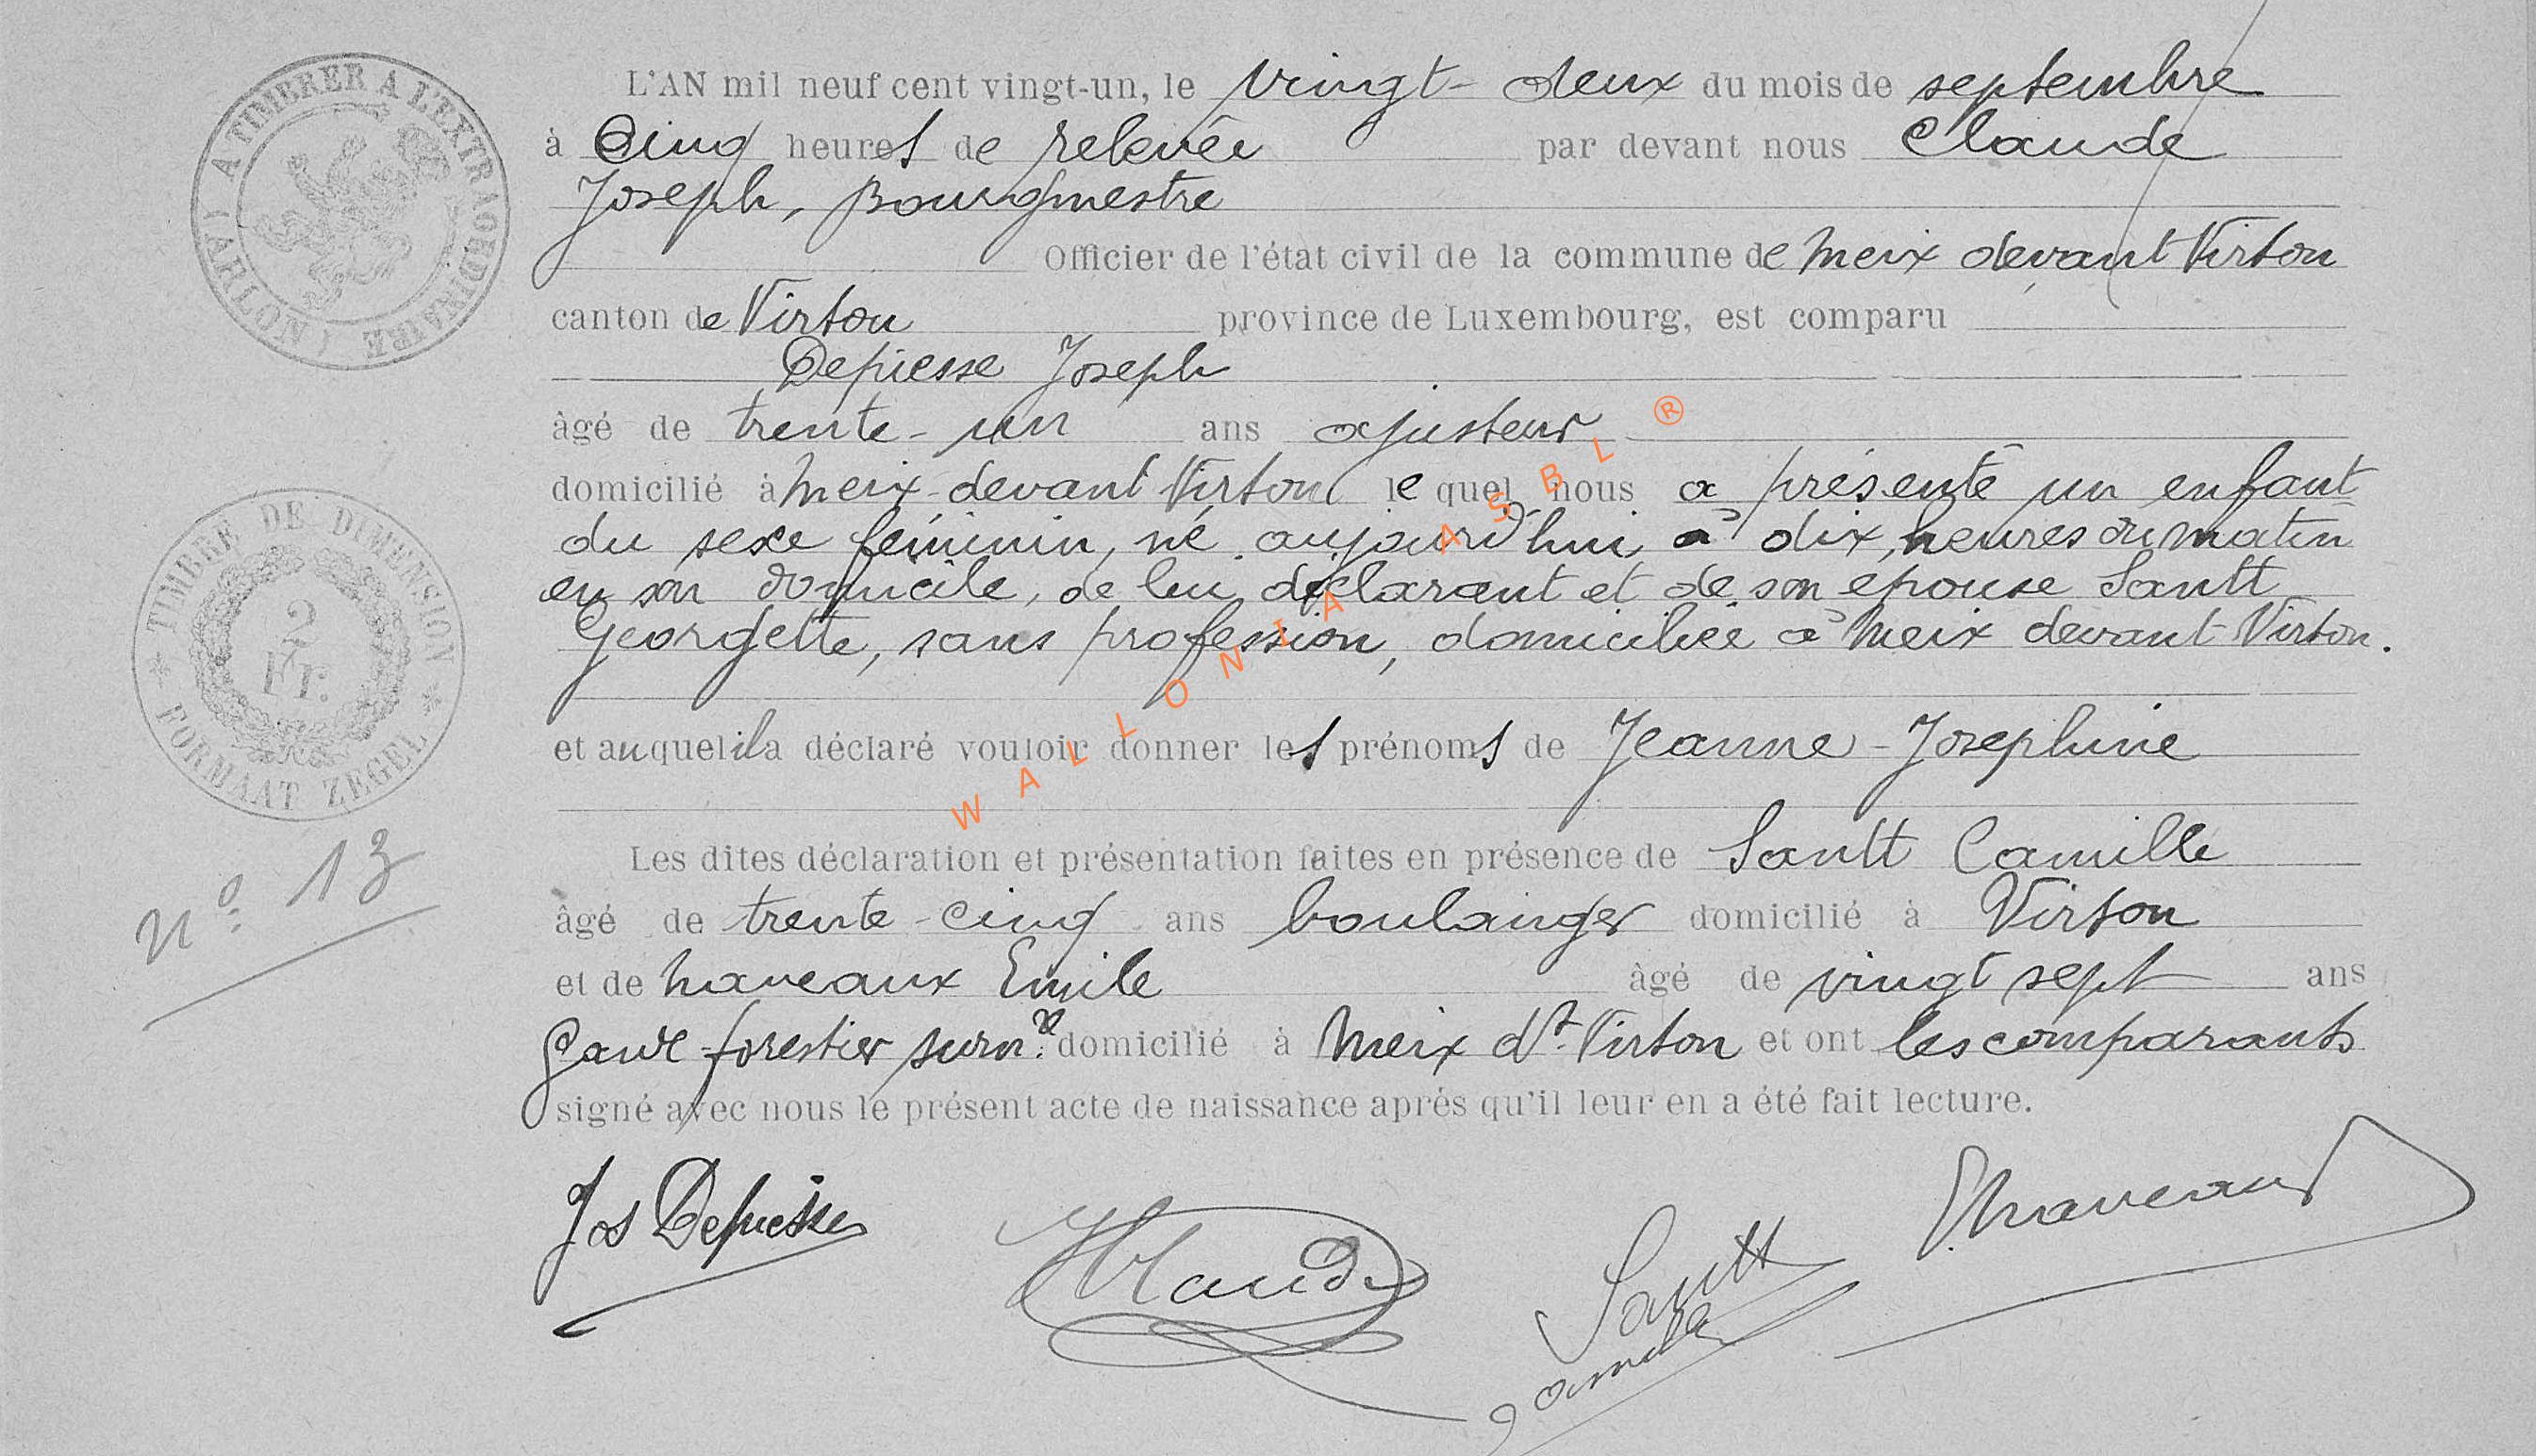 ( ARLON ) A TIMBRER A L'EXTRAORDINAIRE
L'AN mil neuf cent vingt-un, le vingt-deux du mois de septembre
à Cinq heures de relevée par devant nous Claude
Joseph, Bourgmestre
Officier de l'état civil de la commune de Meix devant Virton
canton de Virton province de Luxembourg, est comparu
Depiesse Joseph
âgé de trente-un ans ajusteur
domicilié à Meix-devant Virton le quel nous a présenté un enfant
du sexe féminin, né aujourd'hui à dix heures du matin
en son domicile, de lui déclarant et de son épouse Santt
Georgette, sans profession, domiciliée à Meix devant Virton.
et auquel il a déclaré vouloir donner les prénoms de Jeanne-Josephine
Les dites déclaration et présentation faites en présence de Santt Camille
âgé de trente-cinq ans boulanger domicilié à Virton
et de Naveaux Emile âgé de vingt sept ans
Garde-forestier surn.re domicilié à Meix dt. Virton et ont les comparants
signé avec nous le présent acte de naissance après qu'il leur en a été fait lecture.
TIMBRE DE DIMENSION
2 Fr.
* FORMAAT ZEGEL *
No. 13
WALLONIA ASBL ®
Jos Depiesse
JClaude
Santt
Camille
E. Naveaux